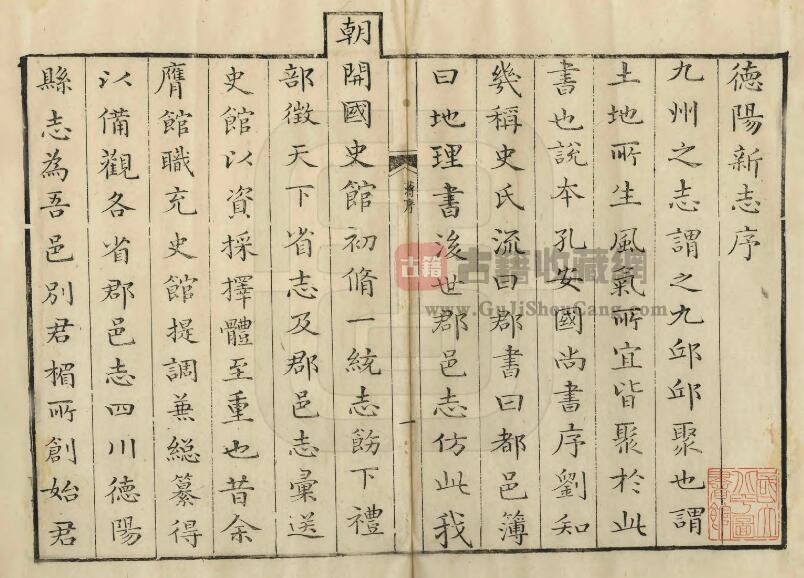 德陽新志序
九州之志謂之九邱邱聚也謂
土地所生風氣所宜皆聚於此
書也說本孔安國尚書序劉知
幾稱史氏流曰郡書曰都邑簿
曰地理書後世郡邑志仿此我
蔣序
一
朝開國史館初脩一統志飭下禮
部徵天下省志及郡邑志彙送
史館以資採擇體至重也昔余
膺館職充史館提調兼總纂得
以備觀各省郡邑志四川德陽
縣志為吾邑別君楣所創始君
古籍 古籍收藏網
www.GuJiShouCang.com